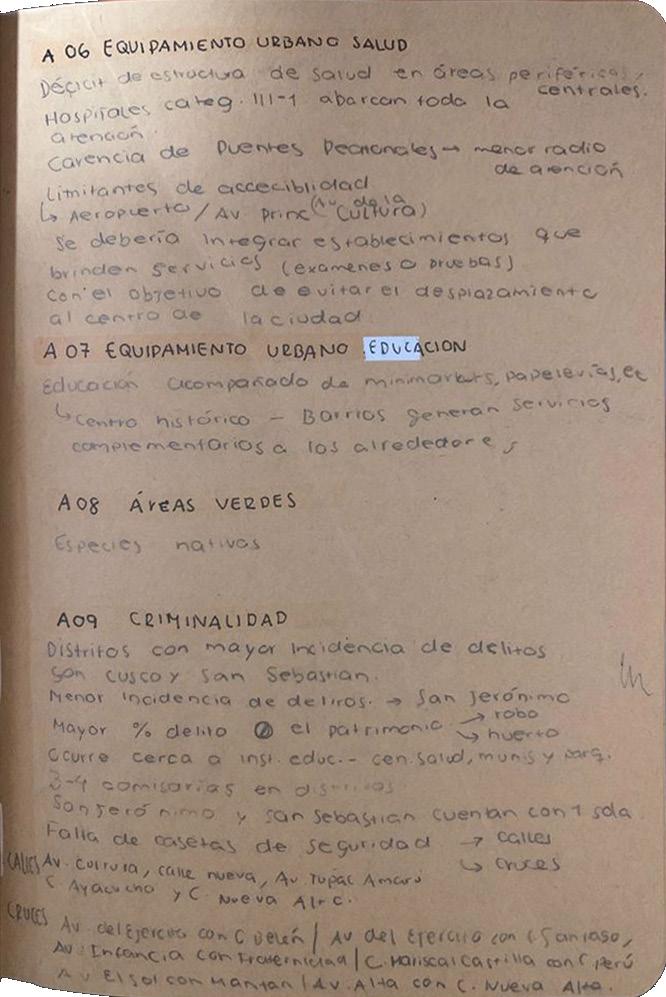 A 06 EQUIPAMIENTO URBANO SALUD
Déficit de estructura de salud en áreas periféricas,
centrales.
Hospitales categ. III-1 abarcan toda la
atención.
Carencia de Puentes Peatonales → menor radio
de atención
Limitantes de accecibilidad
↳ Aeropuerto / Av Princ (Av de la Cultura)
Se debería integrar establecimientos que
brinden servicios (examenes o pruebas)
con el objetivo de evitar el desplazamiento
al centro de la ciudad
A 07 EQUIPAMIENTO URBANO EDUCACION
Educación acompañado de minimarkets, papelerías, etc
↳ Centro histórico - Barrios generan servicios
complementarios a los alrededores
A08 ÁREAS VERDES
Especies nativas
A09 CRIMINALIDAD
Distritos con mayor incidencia de delitos
son cusco y San Sebastian.
Menor incidencia de delitos. → San Jerónimo
Mayor % delito el patrimonio → robo
↳ huerto
Ocurre cerca a inst. educ.- cen. salud, munis y parq.
3-4 comisarias en distritos
San Jerónimo y San Sebastian cuentan con 1 sola
Falla de casetas de seguridad → calles
↳ cruces
CALLES Av. Cultura, calle nueva, Av Tupac Amaru
C. Ayacucho y C. Nueva Alta
CRUCES Av del Ejercito con C Belén / Av del Ejercito con
Av. Infancia con Fraternidad / C. Mariscal Castilla con C Perú
Av El Sol con / Av. Alta con C. Nueva Alta.